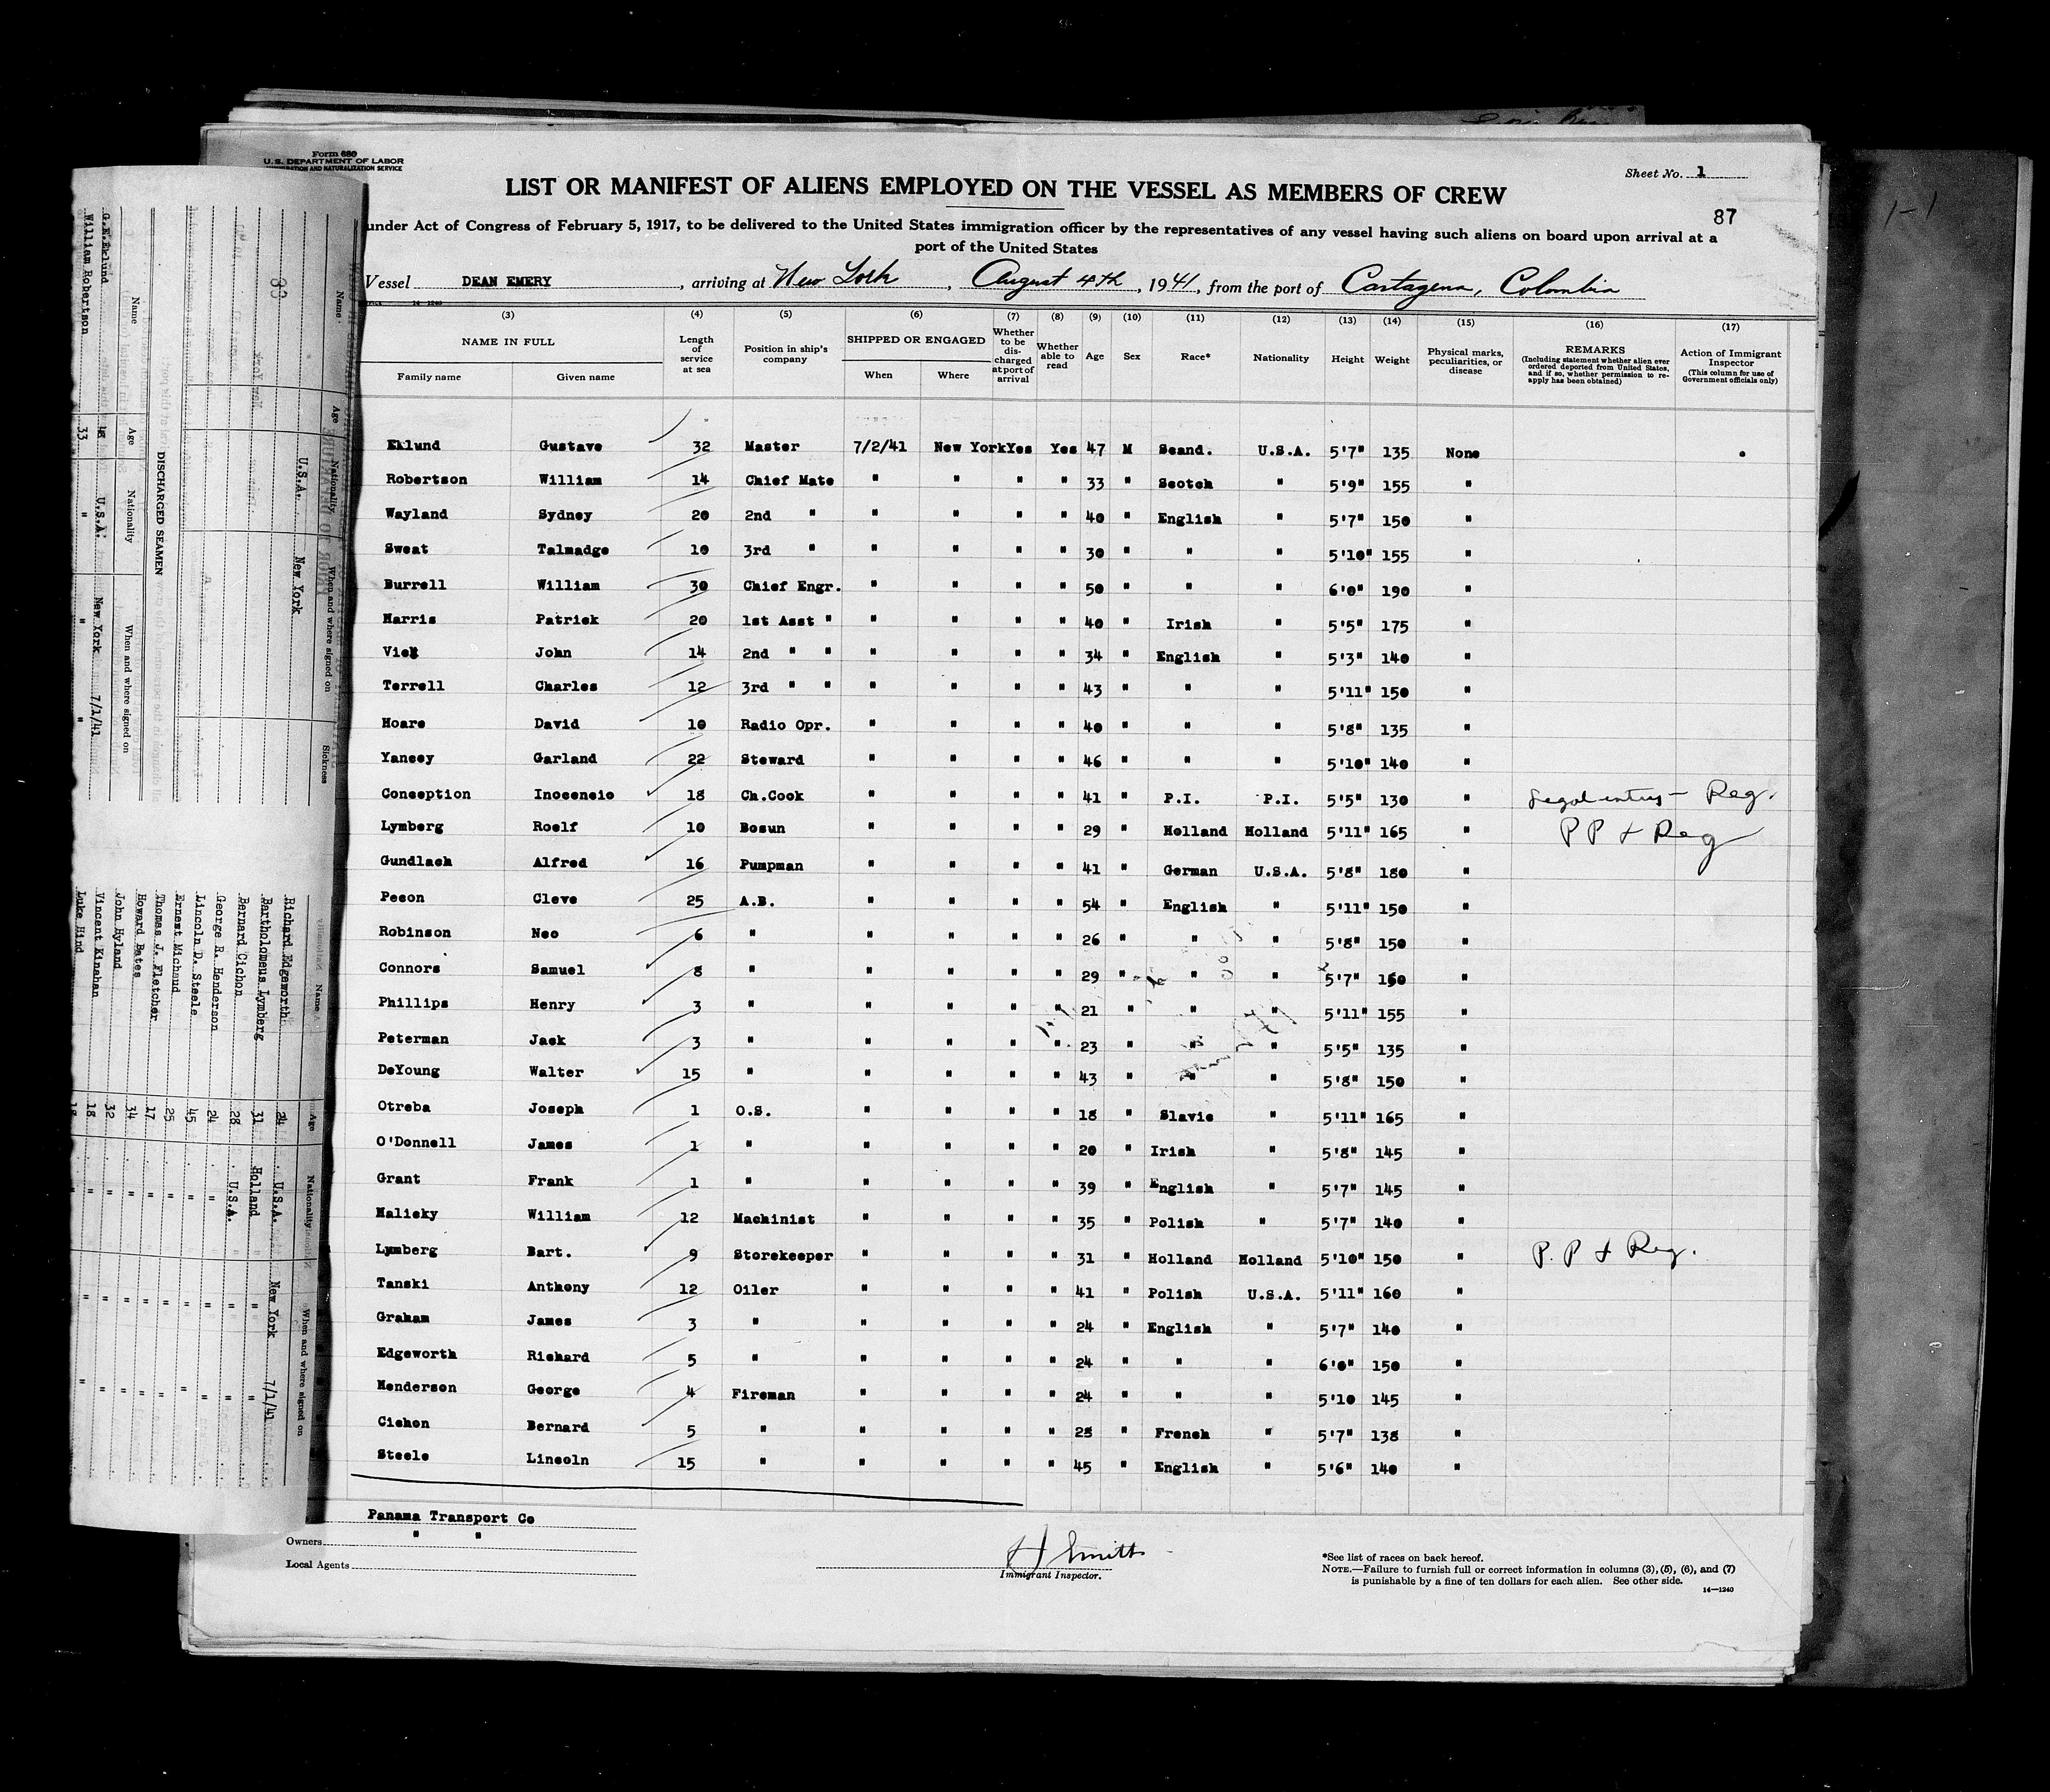 Form 680
U.S. DEPARTMENT OF LABOR
IMMIGRATION AND NATURALIZATION SERVICE
Sheet No. 1
LIST OR MANIFEST OF ALIENS EMPLOYED ON THE VESSEL AS MEMBERS OF CREW
87
under Act of Congress of February 5, 1917, to be delivered to the United States immigration officer by the representatives of any vessel having such aliens on board upon arrival at a
port of the United States
Vessel DEAN EMERY, arriving at New York, August 4th, 1941, from the port of Cartagena, Colombia
14-1240
(3) (4) (5) (6) (7) (8) (9) (10) (11) (12) (13) (14) (15) (16) (17)
NAME IN FULL
Family name Given name
Length of service at sea
Position in ship's company
SHIPPED OR ENGAGED
When Where
Whether to be discharged at port of arrival
Whether able to read
Age Sex Race* Nationality Height Weight
Physical marks, peculiarities, or disease
REMARKS
(Including statement whether alien ever ordered deported from United States, and if so, whether permission to reapply has been obtained)
Action of Immigrant Inspector
(This column for use of Government officials only)
Eklund Gustave 32 Master 7/2/41 New York Yes Yes 47 M Scand. U.S.A. 5'7" 135 None
Robertson William 14 Chief Mate " " " " 33 " Scotch " 5'9" 155 "
Wayland Sydney 20 2nd " " " " " 40 " English " 5'7" 150 "
Sweat Talmadge 10 3rd " " " " " 30 " " " 5'10" 155 "
Burrell William 30 Chief Engr. " " " " 50 " " " 6'0" 190 "
Harris Patrick 20 1st Asst " " " " " 40 " Irish " 5'5" 175 "
Vick John 14 2nd " " " " " " 34 " English " 5'3" 140 "
Terrell Charles 12 3rd " " " " " " 43 " " " 5'11" 150 "
Hoare David 10 Radio Opr. " " " " 40 " " " 5'8" 135 "
Yancey Garland 22 Steward " " " " 46 " " " 5'10" 140 "
Conception Inocencio 18 Ch.Cook " " " " 41 " P.I. P.I. 5'5" 130 " Legal entry - Reg.
Lymberg Roelf 10 Bosun " " " " 29 " Holland Holland 5'11" 165 " P P & Reg
Gundlach Alfred 16 Pumpman " " " " 41 " German U.S.A. 5'8" 180 "
Pecon Cleve 25 A.B. " " " " 54 " English " 5'11" 150 "
Robinson Neo 6 " " " " " 26 " " " 5'8" 150 "
Connors Samuel 8 " " " " " 29 " " " 5'7" 160 "
Phillips Henry 3 " " " " " 21 " " " 5'11" 155 "
Peterman Jack 3 " " " " " 23 " " " 5'5" 135 "
DeYoung Walter 15 " " " " " 43 " " " 5'8" 150 "
Otreba Joseph 1 O.S. " " " " 18 " Slavic " 5'11" 165 "
O'Donnell James 1 " " " " " 20 " Irish " 5'8" 145 "
Grant Frank 1 " " " " " 39 " English " 5'7" 145 "
Malicky William 12 Machinist " " " " 35 " Polish " 5'7" 140 "
Lymberg Bart. 9 Storekeeper " " " " 31 " Holland Holland 5'10" 150 " P. P & Reg.
Tanski Anthony 12 Oiler " " " " 41 " Polish U.S.A. 5'11" 160 "
Graham James 3 " " " " " 24 " English " 5'7" 140 "
Edgeworth Richard 5 " " " " " 24 " " " 6'0" 150 "
Henderson George 4 Fireman " " " " 24 " " " 5'10 145 "
Cichon Bernard 5 " " " " " 28 " French " 5'7" 138 "
Steele Lincoln 15 " " " " " 45 " English " 5'6" 140 "
Panama Transport Co
Owners " "
Local Agents
H Smith
Immigrant Inspector.
*See list of races on back hereof.
NOTE.—Failure to furnish full or correct information in columns (3), (5), (6), and (7)
is punishable by a fine of ten dollars for each alien. See other side.
14—1240
Name Age Nationality When and where signed on Sickness
U.S.A. New York
DISCHARGED SEAMEN
Name Age Nationality When and where signed on
G.E. Eklund U.S.A. New York 7/1/41
William Robertson 33 " " "
Name Age Nationality When and where signed on
Richard Edgeworth 24 U.S.A. New York 7/1/41
Bartholomeus Lymberg 31 Holland " "
Bernard Cichon 28 U.S.A. " "
George R. Henderson 24 " " "
Lincoln D. Steele 45 " " "
Ernest Michaud 25 " " "
Thomas J. Fletcher 17 " " "
Howard Bates 34 " " "
John Hyland 32 " " "
Vincent Kinahan 18 " " "
Luke Hind 18 " " "